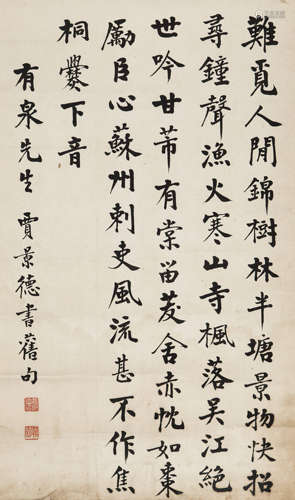 難覓人間錦樹林半塘景物快招
尋鐘聲漁火寒山寺楓落吳江絕
世吟甘芾有棠留茇舍赤忱如棗
勵臣心蘇州刺吏風流甚不作焦
桐爨下音
有泉先生 賈景德書舊句